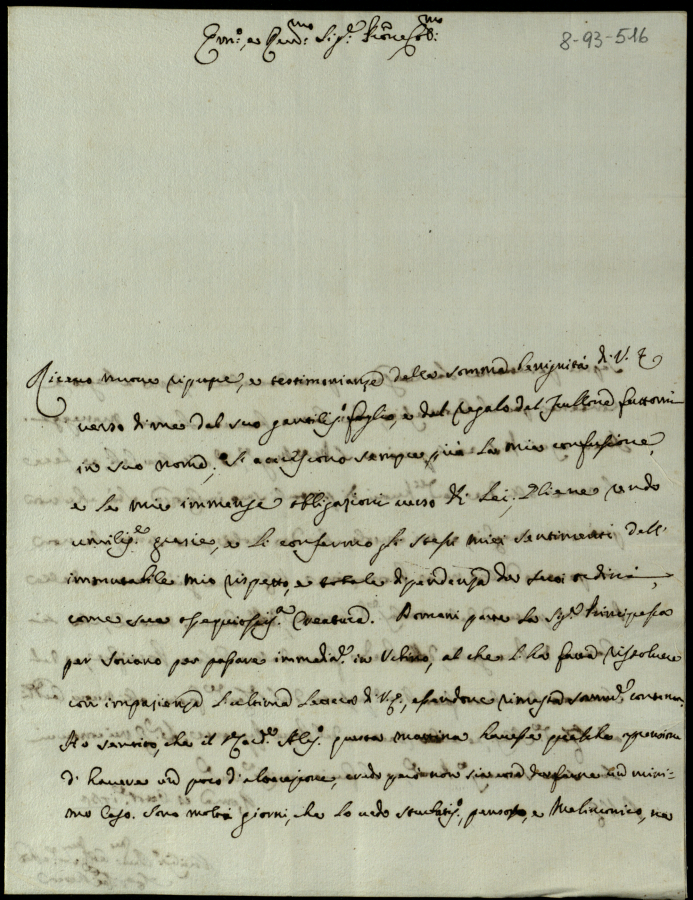 Em.º, e Rev.mo Sig.r Pron Col.mo
8-93-516
Ricevo nuove riprove, e testimonianze della somma benignità di V. E.
verso di me dal suo gentiliss.º foglio, e dal regalo del fattomi
in suo nome; Si accrescono sempre più la mia confusione,
e le mie immense obbligazioni verso di Lei; Gliene rendo
umiliss.e grazie, e Li confermo gli stessi miei sentimenti dell'
immutabile mio rispetto, e totale dipendenza da suoi ordini,
come sua ossequiosiss.a Creatura. Domani parte la Sig.ra Principessa
per Soriano per passare immediat.e in Urbino, al che l'ha fatta risolvere
con impazienza l'ultima lettera di V.E., essendone rimasta somm.e contenta.
Ho sentito, che il questa mattina havesse qualche
d'havere un poco d'alterazione, credo però non sia cosa da farne un mini-
mo caso. Sono molti giorni, che lo vedo pensoso, e Melinconico, ne